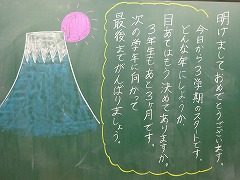 明けましておめでとうございます。
今日から3学期のスタートです。
どんな年にしようか、
目あてはもう決めてありますか。
3年生もあと3ヶ月です。
次の学年に向かって
最後までがんばりましょう。